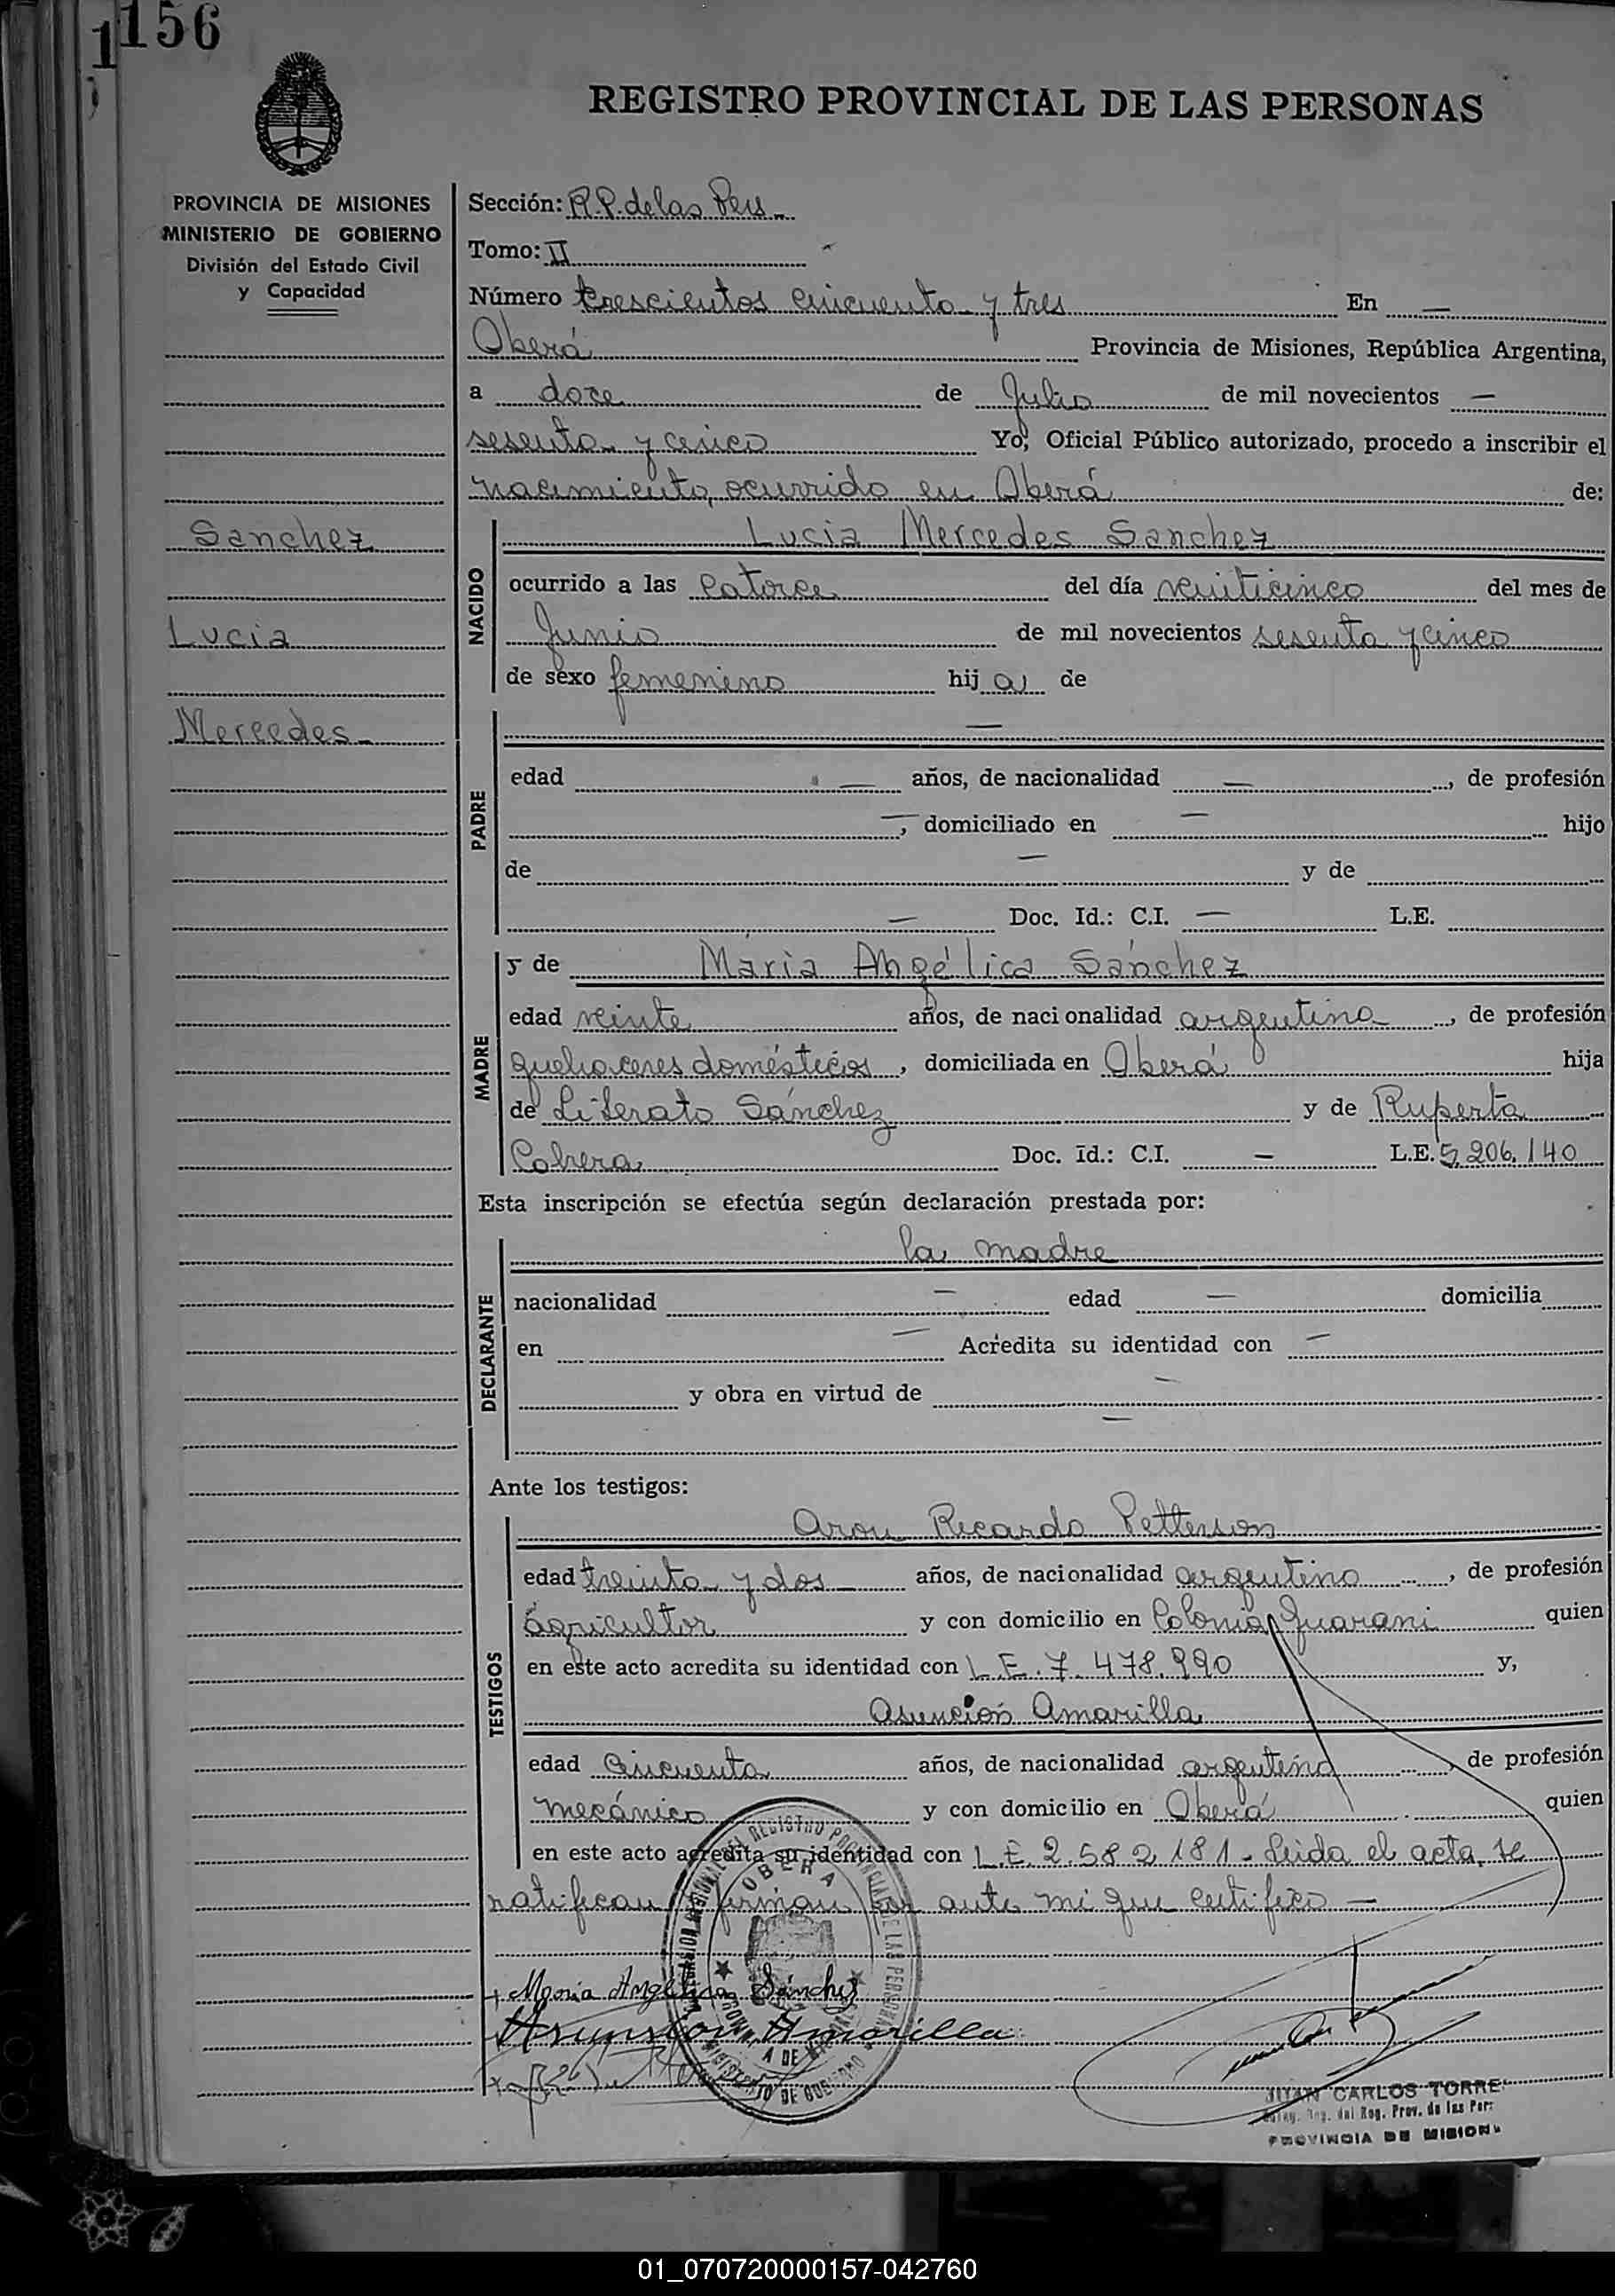 156
REGISTRO PROVINCIAL DE LAS PERSONAS
PROVINCIA DE MISIONES
MINISTERIO DE GOBIERNO
División del Estado Civil
y Capacidad
Sanchez
Lucia
Mercedes
Sección: R.P. de las Pers
Tomo: II
Número trescientos cincuenta y tres En —
Oberá Provincia de Misiones, República Argentina,
a doce de Julio de mil novecientos —
sesenta y cinco Yo, Oficial Público autorizado, procedo a inscribir el
nacimiento, ocurrido en Oberá de:
NACIDO
Lucia Mercedes Sanchez
ocurrido a las catorce del día veinticinco del mes de
Junio de mil novecientos sesenta y cinco
de sexo femenino hij a de
PADRE
—
edad — años, de nacionalidad —, de profesión
—, domiciliado en — hijo
de — y de
— Doc. Id.: C.I. — L.E.
MADRE
y de Maria Angélica Sánchez
edad veinte años, de nacionalidad argentina, de profesión
quehaceres domésticos, domiciliada en Oberá hija
de Liberato Sánchez y de Ruperta
Cabrera Doc. Id.: C.I. — L.E. 5.206.140
Esta inscripción se efectúa según declaración prestada por:
DECLARANTE
la madre
nacionalidad — edad — domicilia
en — Acredita su identidad con —
y obra en virtud de —
—
Ante los testigos:
TESTIGOS
Aron Ricardo Petterson
edad treinta y dos — años, de nacionalidad argentino, de profesión
agricultor y con domicilio en Colonia Guarani quien
en este acto acredita su identidad con L.E. 7.478.990 y,
Asunción Amarilla
edad cincuenta años, de nacionalidad argentino, de profesión
mecánico y con domicilio en Oberá quien
en este acto acredita su identidad con L.E. 2.582.181 - Leida el acta, se
ratifican firman por ante mi que certifico —
OBERA
Maria Angélica Sánchez
Asunsion Amarilla
JUAN CARLOS TORRE
del Reg. Prov. de las Per
PROVINCIA DE MISION
01_070720000157-042760